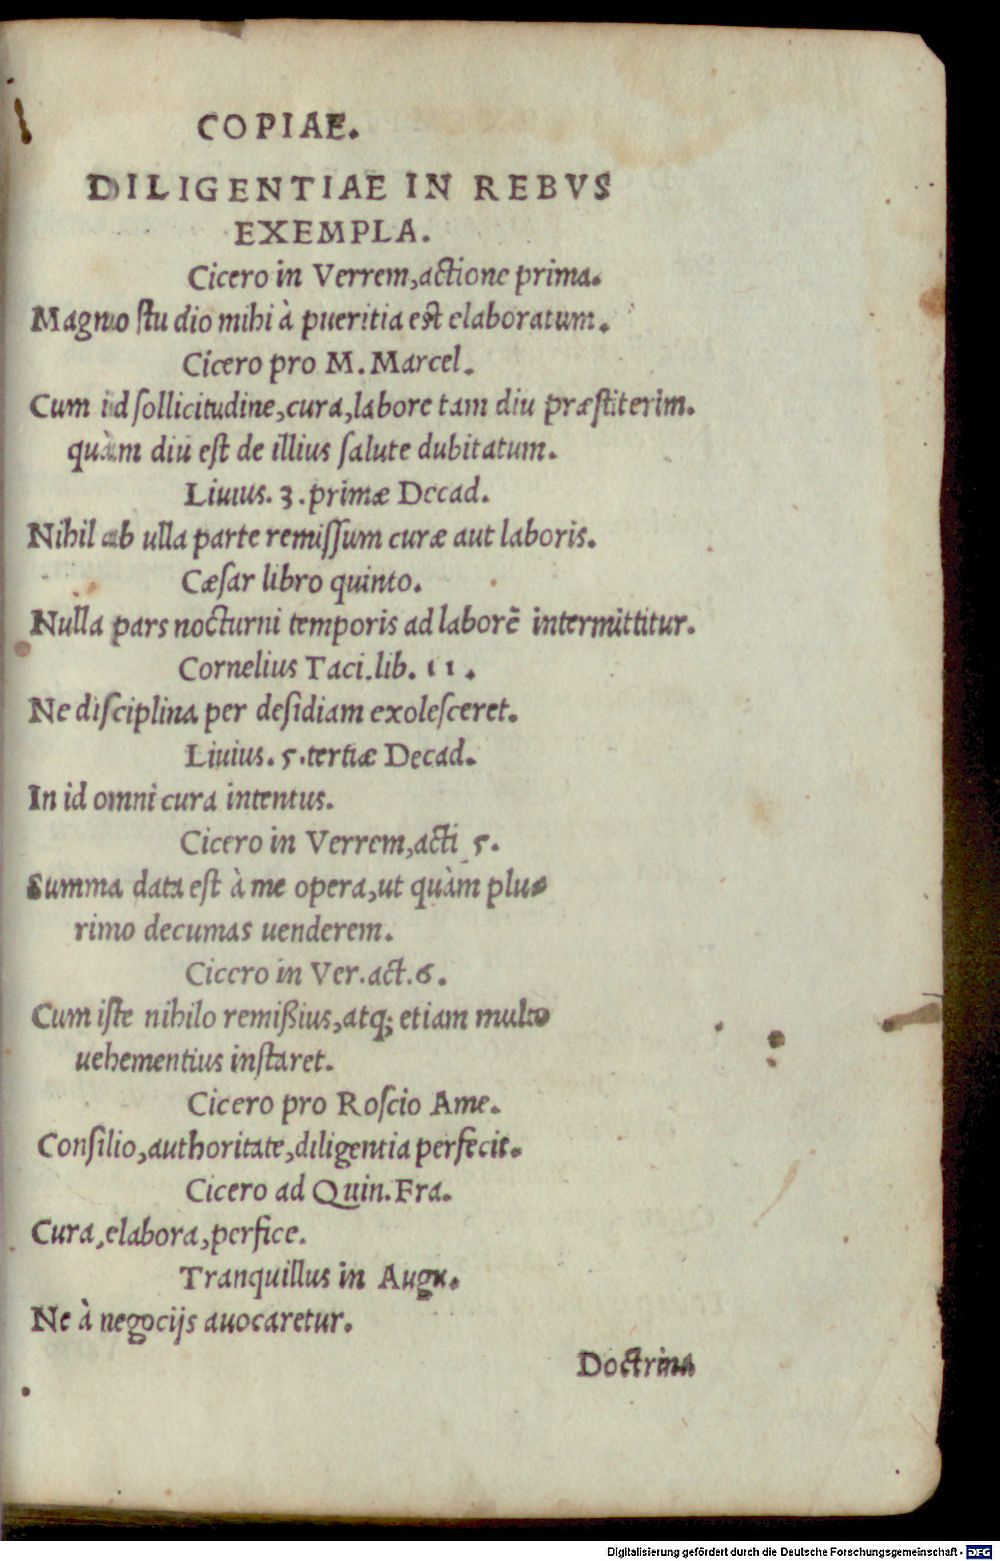 COPIAE.
DILIGENTIAE IN REBVS
EXEMPLA.
Cicero in Verrem,actione prima.
Magno ſtu dio mihi à pueritia eſt elaboratum.
Cicero pro M. Marcel.
Cum id ſollicitudine,cura,labore tam diu præſtiterim.
quàm diu eſt de illius ſalute dubitatum.
Liuius. 3. primæ Decad.
Nihil ab ulla parte remiſſum curæ aut laboris.
Cæſar libro quinto.
Nulla pars nocturni temporis ad laborē intermittitur.
Cornelius Taci.lib. 11.
Ne diſciplina per deſidiam exoleſceret.
Liuius. 5.tertiæ Decad.
In id omni cura intentus.
Cicero in Verrem,acti 5.
Summa data eſt à me opera,ut quàm plu-
rimo decumas uenderem.
Cicero in Ver.act.6.
Cum iſte nihilo remißius,atq; etiam multo
uehementius inſtaret.
Cicero pro Roſcio Ame.
Conſilio,authoritate,diligentia perfecit.
Cicero ad Quin.Fra.
Cura,elabora,perfice.
Tranquillus in Augu.
Ne à negocijs auocaretur.
Doctrina
Digitalisierung gefördert durch die Deutsche Forschungsgemeinschaft - DFG